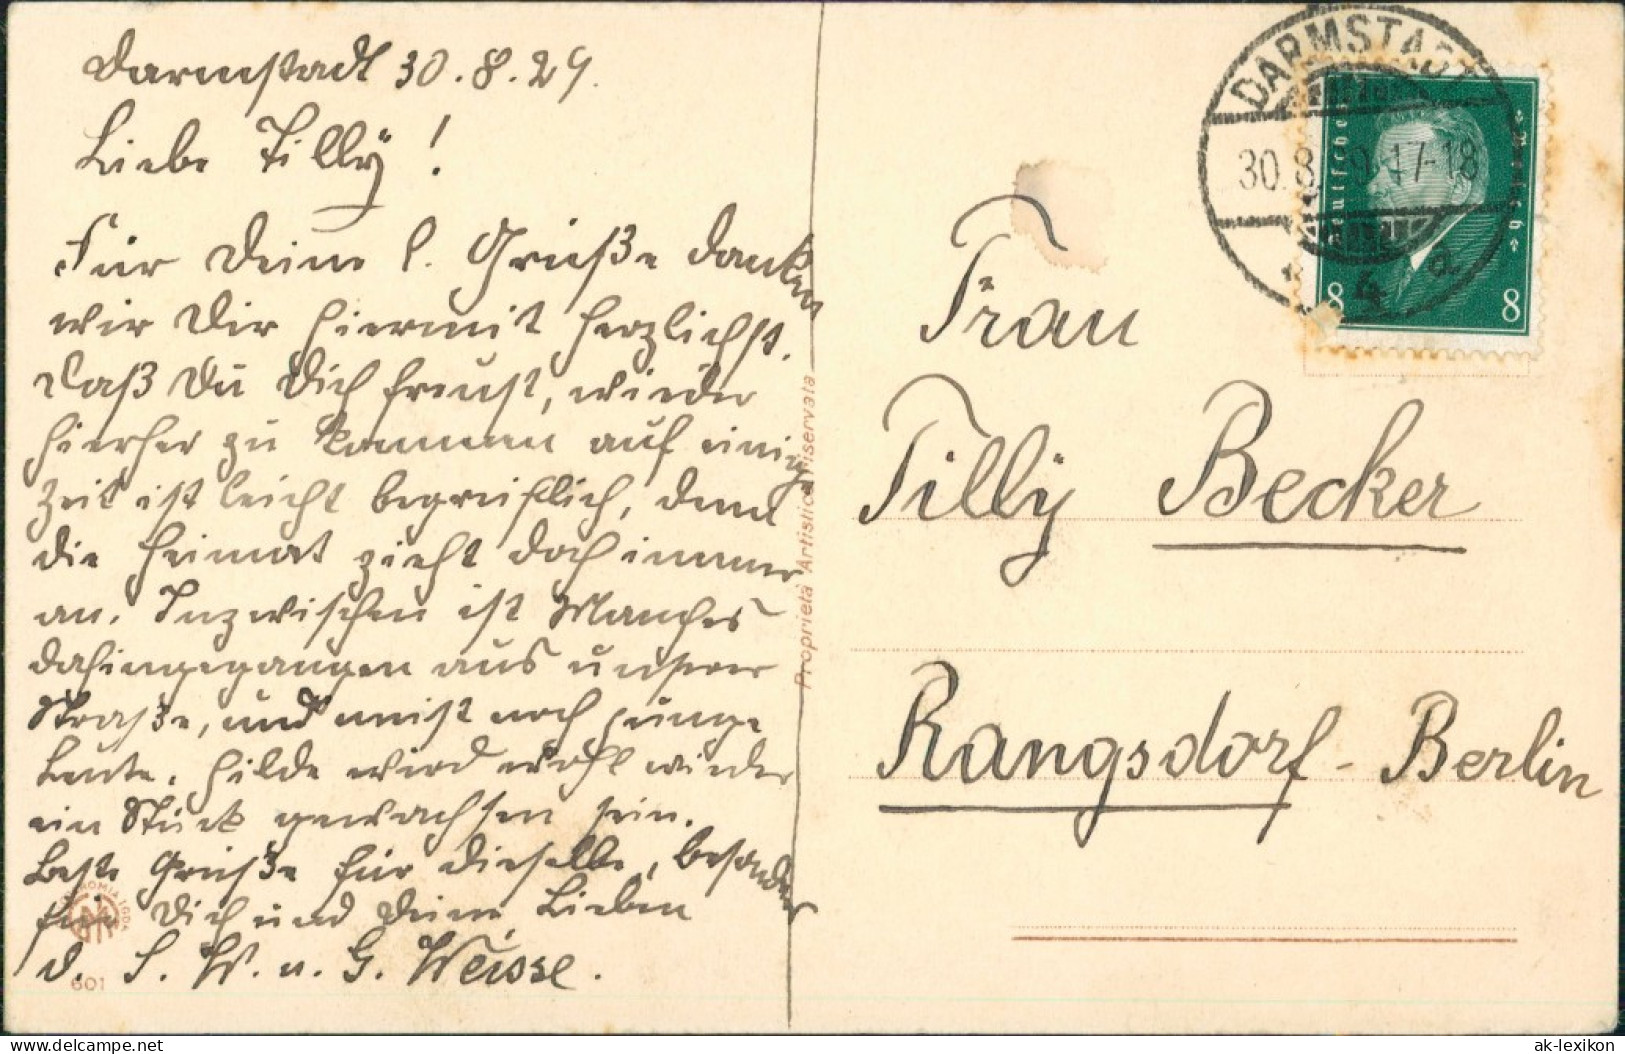 Darmstadt 30.8.29.
Liebe Tilly!
Für Deine l. Grüße danken
wir Dir hiermit herzlichst.
Daß Du Dich freust, wieder
hierher zu kommen auf einige
Zeit ist leicht begreiflich, denn
die Heimat zieht doch immer
an. Inzwischen ist Manches
dahingegangen aus unserer
Straße, und meist noch junge
Leute. Hilde wird wohl wieder
ein Stück gewachsen sein.
Beste Grüße für dieselbe, besonders
für Dich und Deine Lieben
d. W. u. G. Weisse.
601
Proprietà Artistica riservata
DARMSTADT
30.8.29.17-18
4 a
Deutsches Reich
8 8
Frau
Tilly Becker
Rangsdorf - Berlin
www.delcampe.net
ak-lexikon